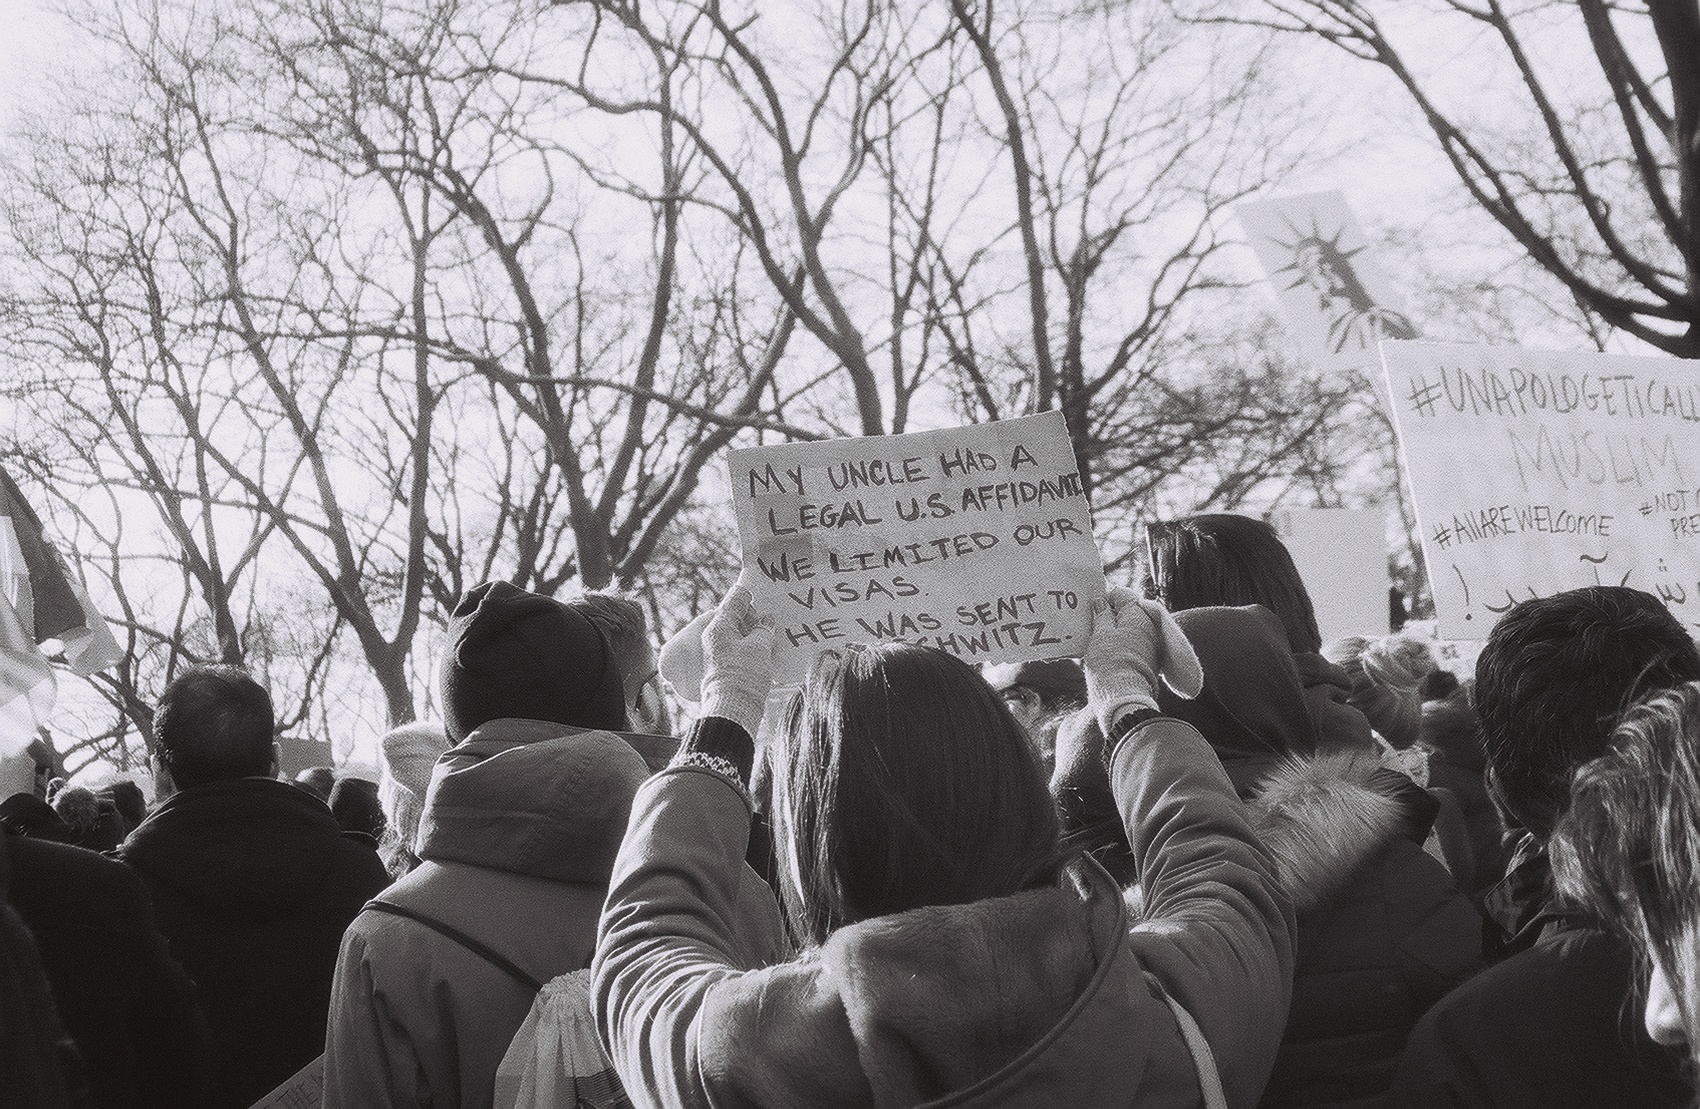 MY UNCLE HAD A
LEGAL U.S. AFFIDAVIT
WE LIMITED OUR
VISAS.
HE WAS SENT TO
CHWITZ.
#UNAPOLOGETICALL
MUSLIM
#AllAREWELCOME
#NOT
PRE
THE